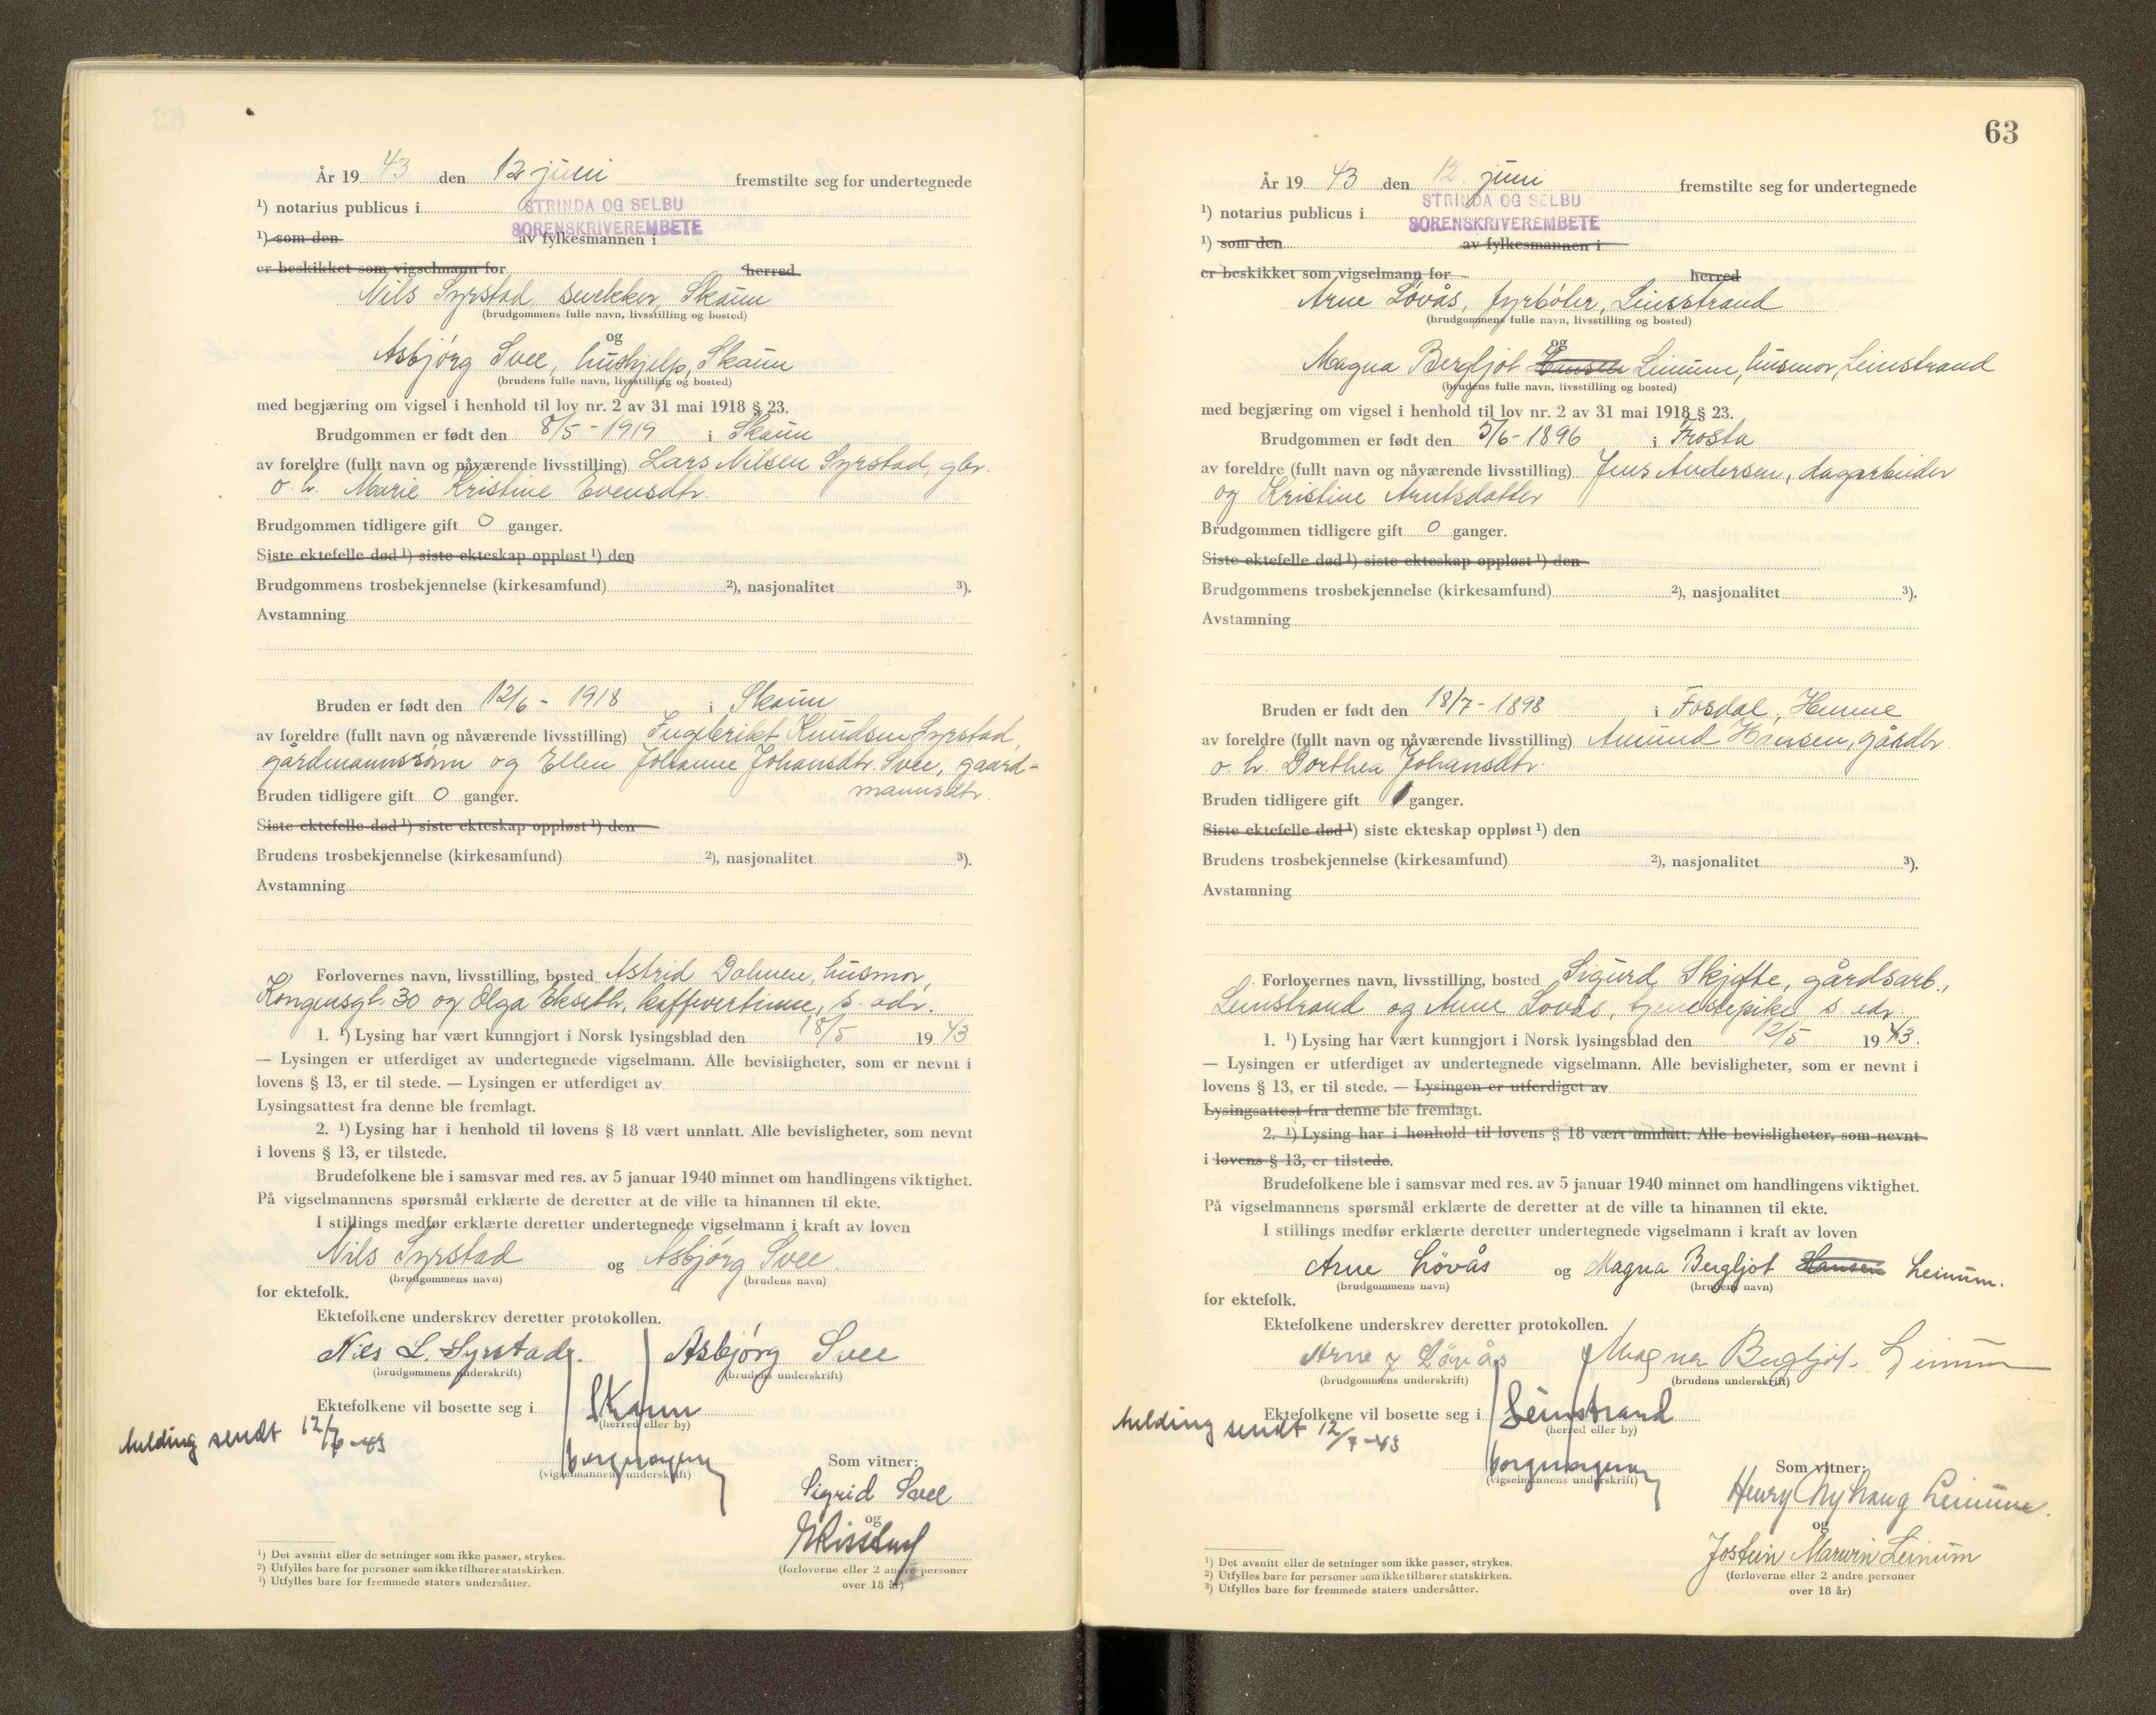 År 19 43 den 12 juni fremstilte seg for undertegnede
¹) notarius publicus i STRINDA OG SELBU
SORENSKRIVEREMBETE
¹) som den av fylkesmannen i
er beskikket som vigselmann for herred
Nils Syrstad, snekker, Skaun
(brudgommens fulle navn, livsstilling og bosted)
og
Asbjørg Svee, hushjelp, Skaun
(brudens fulle navn, livsstilling og bosted)
med begjæring om vigsel i henhold til lov nr. 2 av 31 mai 1918 § 23.
Brudgommen er født den 8/5 - 1919 i Skaun
av foreldre (fullt navn og nåværende livsstilling) Lars Nilsen Syrstad, gbr.
o. h. Marie Kristine Evensdtr.
Brudgommen tidligere gift 0 ganger.
Siste ektefelle død ¹) siste ekteskap oppløst ¹) den
Brudgommens trosbekjennelse (kirkesamfund) ²), nasjonalitet ³).
Avstamning
Bruden er født den 12/6 - 1918 i Skaun
av foreldre (fullt navn og nåværende livsstilling) Ingebrikt Knudsen Syrstad,
gårdmannssønn og Ellen Johanne Johansdtr. Svee, gaard-
mannsdtr.
Bruden tidligere gift 0 ganger.
Siste ektefelle død ¹) siste ekteskap oppløst ¹) den
Brudens trosbekjennelse (kirkesamfund) ²), nasjonalitet ³).
Avstamning
Forlovernes navn, livsstilling, bosted Astrid Dahlen, husmor,
Kongensgt. 30 og Olga Ekseth, kaffevertinne, s. adr.
1. ¹) Lysing har vært kunngjort i Norsk lysingsblad den 18/5 19 43
— Lysingen er utferdiget av undertegnede vigselmann. Alle bevisligheter, som er nevnt i
lovens § 13, er til stede. — Lysingen er utferdiget av
Lysingsattest fra denne ble fremlagt.
2. ¹) Lysing har i henhold til lovens § 18 vært unnlatt. Alle bevisligheter, som nevnt
i lovens § 13, er tilstede.
Brudefolkene ble i samsvar med res. av 5 januar 1940 minnet om handlingens viktighet.
På vigselmannens spørsmål erklærte de deretter at de ville ta hinannen til ekte.
I stillings medfør erklærte deretter undertegnede vigselmann i kraft av loven
Nils Syrstad og Asbjørg Svee.
(brudgommens navn) (brudens navn)
for ektefolk.
Ektefolkene underskrev deretter protokollen.
Nils L. Syrstad. Asbjørg Svee
(brudgommens underskrift) (brudens underskrift)
Ektefolkene vil bosette seg i Skaun
(herred eller by)
Melding sendt 12/7-43
(vigselmannens underskrift)
Som vitner:
Sigrid Svee
og
(forloverne eller 2 andre personer
over 18 år)
¹) Det avsnitt eller de setninger som ikke passer, strykes.
²) Utfylles bare for personer som ikke tilhører statskirken.
³) Utfylles bare for fremmede staters undersåtter.
63
År 19 43 den 12. juni fremstilte seg for undertegnede
¹) notarius publicus i STRINDA OG SELBU
SORENSKRIVEREMBETE
¹) som den av fylkesmannen i
er beskikket som vigselmann for herred
Arne Løvås, fyrbøter, Leinstrand
(brudgommens fulle navn, livsstilling og bosted)
og
Magna Bergljot Hansen Leinum, husmor, Leinstrand
(brudens fulle navn, livsstilling og bosted)
med begjæring om vigsel i henhold til lov nr. 2 av 31 mai 1918 § 23.
Brudgommen er født den 5/6 - 1896 i Frosta
av foreldre (fullt navn og nåværende livsstilling) Jens Andersen, dagarbeider
og Kristine Arntsdatter
Brudgommen tidligere gift 0 ganger.
Siste ektefelle død ¹) siste ekteskap oppløst ¹) den
Brudgommens trosbekjennelse (kirkesamfund) ²), nasjonalitet ³).
Avstamning
Bruden er født den 18/7 - 1898 i Fosdal, Hemne
av foreldre (fullt navn og nåværende livsstilling) Amund Hansen, gårdbr.
o. h. Dorthea Johansdtr.
Bruden tidligere gift 1 ganger.
Siste ektefelle død ¹) siste ekteskap oppløst ¹) den
Brudens trosbekjennelse (kirkesamfund) ²), nasjonalitet ³).
Avstamning
Forlovernes navn, livsstilling, bosted Sigurd Skjefte, gårdsarb.,
Leinstrand og Anne Løvås, tjenestepike s. adr.
1. ¹) Lysing har vært kunngjort i Norsk lysingsblad den 12/5 19 43.
— Lysingen er utferdiget av undertegnede vigselmann. Alle bevisligheter, som er nevnt i
lovens § 13, er til stede. — Lysingen er utferdiget av
Lysingsattest fra denne ble fremlagt.
2. ¹) Lysing har i henhold til lovens § 18 vært unnlatt. Alle bevisligheter, som nevnt
i lovens § 13, er tilstede.
Brudefolkene ble i samsvar med res. av 5 januar 1940 minnet om handlingens viktighet.
På vigselmannens spørsmål erklærte de deretter at de ville ta hinannen til ekte.
I stillings medfør erklærte deretter undertegnede vigselmann i kraft av loven
Arne Løvås og Magna Bergljot Hansen Leinum.
(brudgommens navn) (brudens navn)
for ektefolk.
Ektefolkene underskrev deretter protokollen.
Arne J Løvås Magna Bergljot Leinum
(brudgommens underskrift) (brudens underskrift)
Ektefolkene vil bosette seg i Leinstrand
(herred eller by)
Melding sendt 12/7-43
(vigselmannens underskrift)
Som vitner:
Henry Nyhaug Leinum.
og
Jostein Marvin Leinum
(forloverne eller 2 andre personer
over 18 år)
¹) Det avsnitt eller de setninger som ikke passer, strykes.
²) Utfylles bare for personer som ikke tilhører statskirken.
³) Utfylles bare for fremmede staters undersåtter.